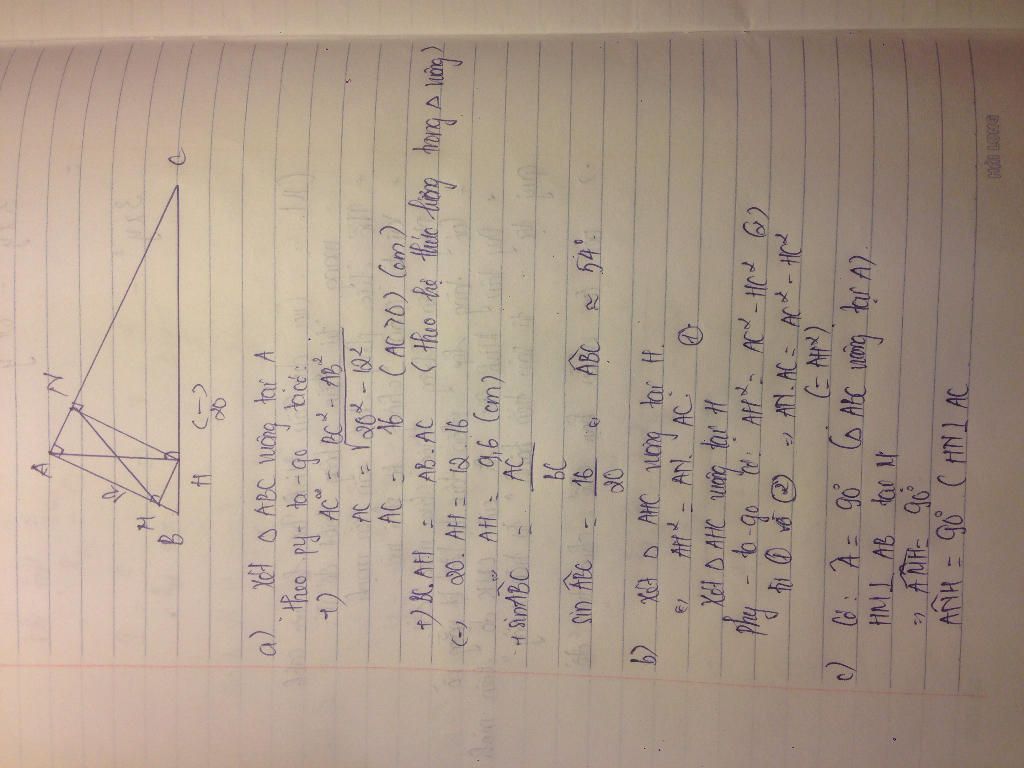 A
N
12
M
B
H
C
(-)
20
a) Xét Δ ABC vuông tại A
theo py-ta-go ta có:
+) AC² = BC² - AB²
AC = √20² - 12²
AC = 16 (AC>0) (cm)
+) BC.AH = AB.AC (theo hệ thức lượng trong Δ vuông)
(-) 20.AH = 12.16
AH = 9,6 (cm)
+ sin ABC = AC
BC
sin ABC = 16 ABC ≈ 54°
20
b) Xét Δ AHC vuông tại H.
AH² = AN. AC ①
Xét Δ AHC vuông tại H
Phy-ta-go có: AH² = AC² - HC² (2)
từ ① và ② => AN.AC = AC² - HC²
(= AH²)
c) Có: A = 90° (Δ ABC vuông tại A)
HM⊥ AB tại M
=> AMH = 90°
ANH = 90° (HN⊥ AC